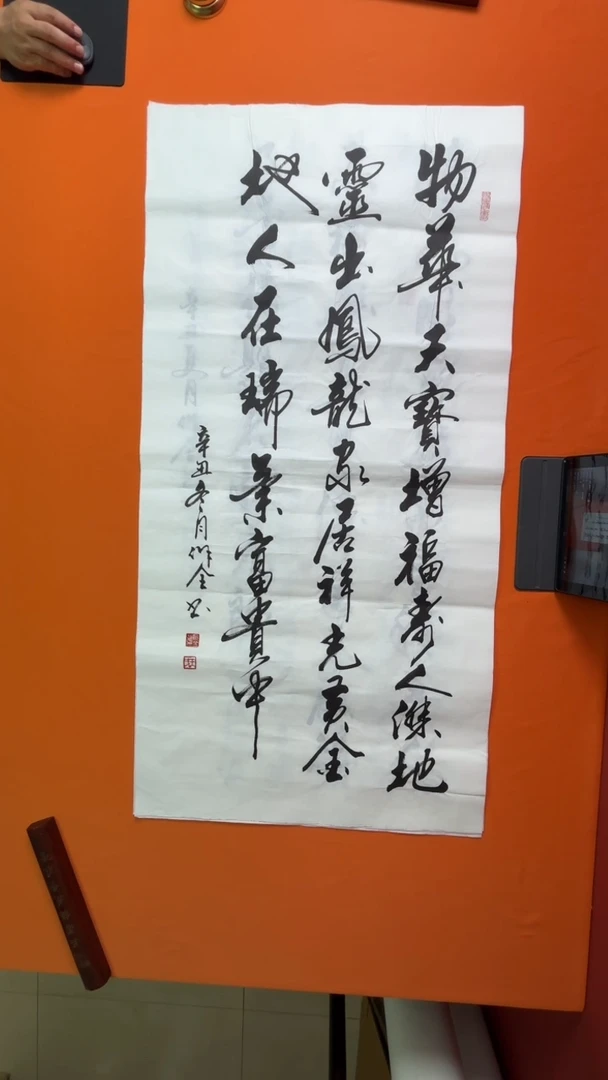 物華天寶增福壽人傑地
靈出鳳龍家居祥光黃金
地人在瑞氣富貴中
辛丑冬月 金书